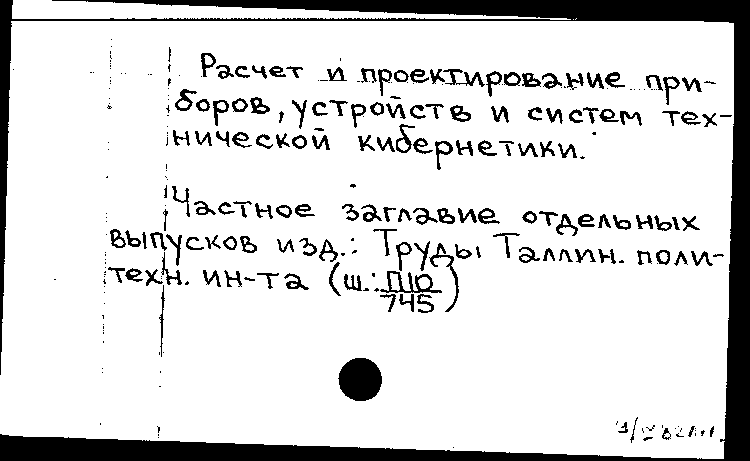 Расчет и проектирование при-
боров, устройств и систем тех-
нической кибернетики.
Частное заглавие отдельных
выпусков изд.: Труды Таллин. поли-
техн. ин-та (ш.: П10/745)